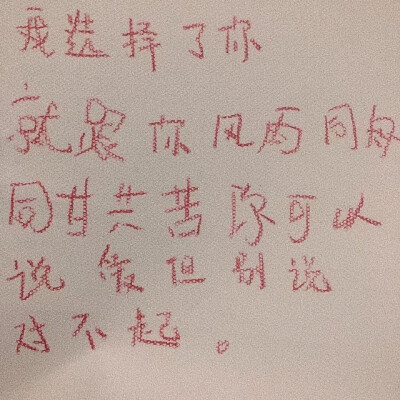 我选择了你
就跟你风雨同舟
同甘共苦你可以
说散但别说
对不起。